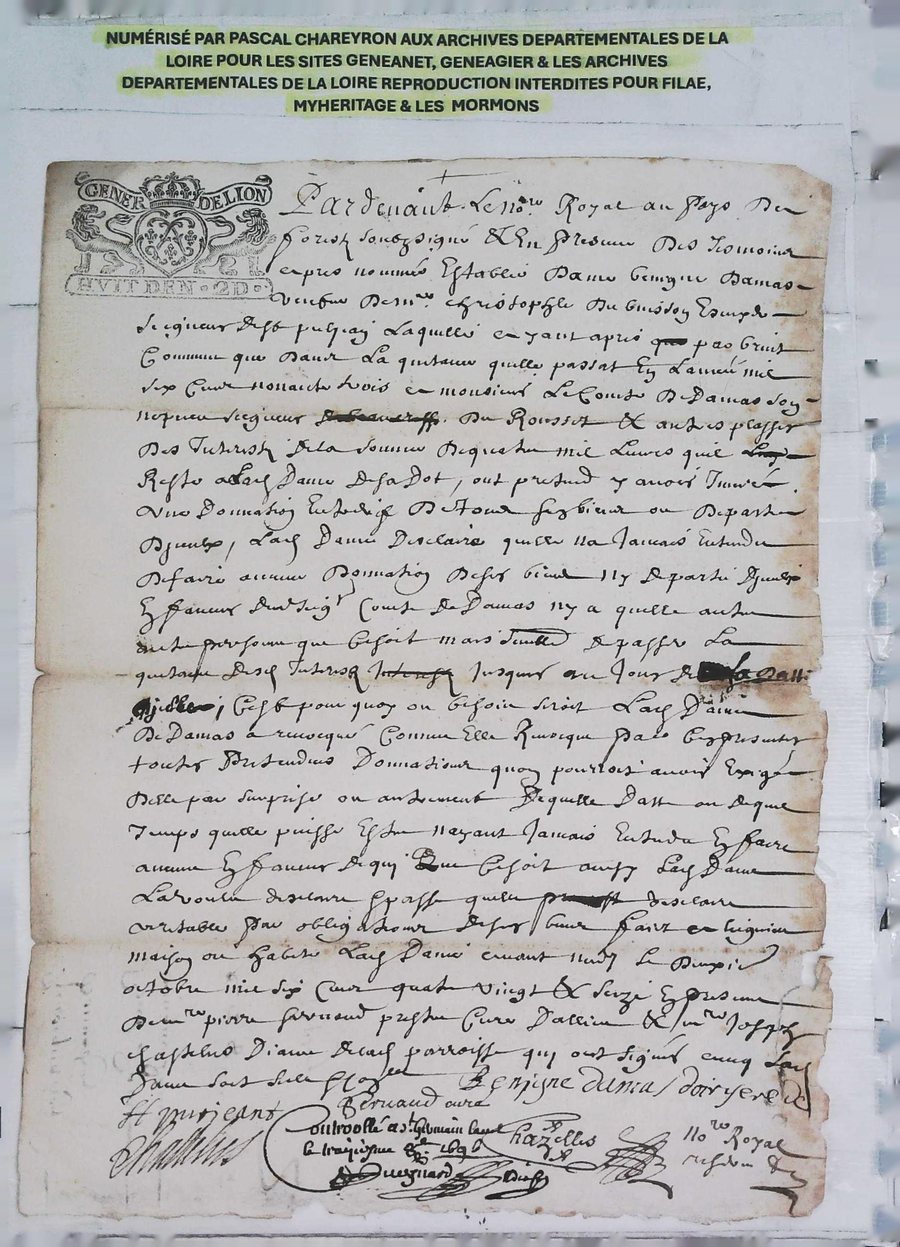 NUMÉRISÉ PAR PASCAL CHAREYRON AUX ARCHIVES DEPARTEMENTALES DE LA
LOIRE POUR LES SITES GENEANET, GENEAGIER & LES ARCHIVES
DEPARTEMENTALES DE LA LOIRE REPRODUCTION INTERDITES POUR FILAE,
MYHERITAGE & LES MORMONS
GENER DELION
HVIT DEN · 2D ·
Pardevant Le no.re Royal au Pays De
forestz soubzsigné & En presence Des Tesmoins
cy apres nommés Establie Dame benigne Damas
veufve De m.re christophle Dubuisson
seigneur de laquelle ayant apris par bruit
Commun que Dans La quitance quelle passat En Lannée mil
six Cent nonante trois a monsieur Le Comte De Damas son
nepveu seigneur Du Rousset & autres places
Des Interestz de la somme De quatre mil Livres quil
Reste a Lad Dame De sa Dot, ont pretend y avoir Inseré
une Donnation De tous ses biens ou De partie
Diceulx, Lad Dame Desclaire quelle na Jamais Entendu
De faire aucune Donnation De ses biens ny de partie Diceulx
En faveur dud seigr Comte de Damas ny a quelle autre
personne que ce soit mais seulle de passer La
quitance desd Interestz Jusques au Jour de la Datte
dicelle, Cest pourquoy ou besoin seroit Lad Dame
De Damas a revocqué Comme Elle Revocque Par Ces presentes
toutes Pretendues Donnations quon pourroit avoir Exigé
Delle par surprise ou autrement De quelle Datte ou de quel
Temps quelle puisse Estre nayant Jamais Entendu En faire
aucune En faveur de qui que ce soit ainsy Lad Dame
La voulu desclairé & passé quelle desclaire
veritable Par obligations de ses biens fait
maison ou habite Lad Dame avant midy le
octobre mil six Cent quatre vingt & seize En presence
De m.re pierre Fernaud prestre Curé Dallieu & m.re Joseph
chastelus Diacre de lad parroisse qui ont signés avecq Lad
Dame
Benigne damas
Fernaud cure
controollé a st Germain laval
le traizieme 8bre 1696
Chazelles
no.re Royal